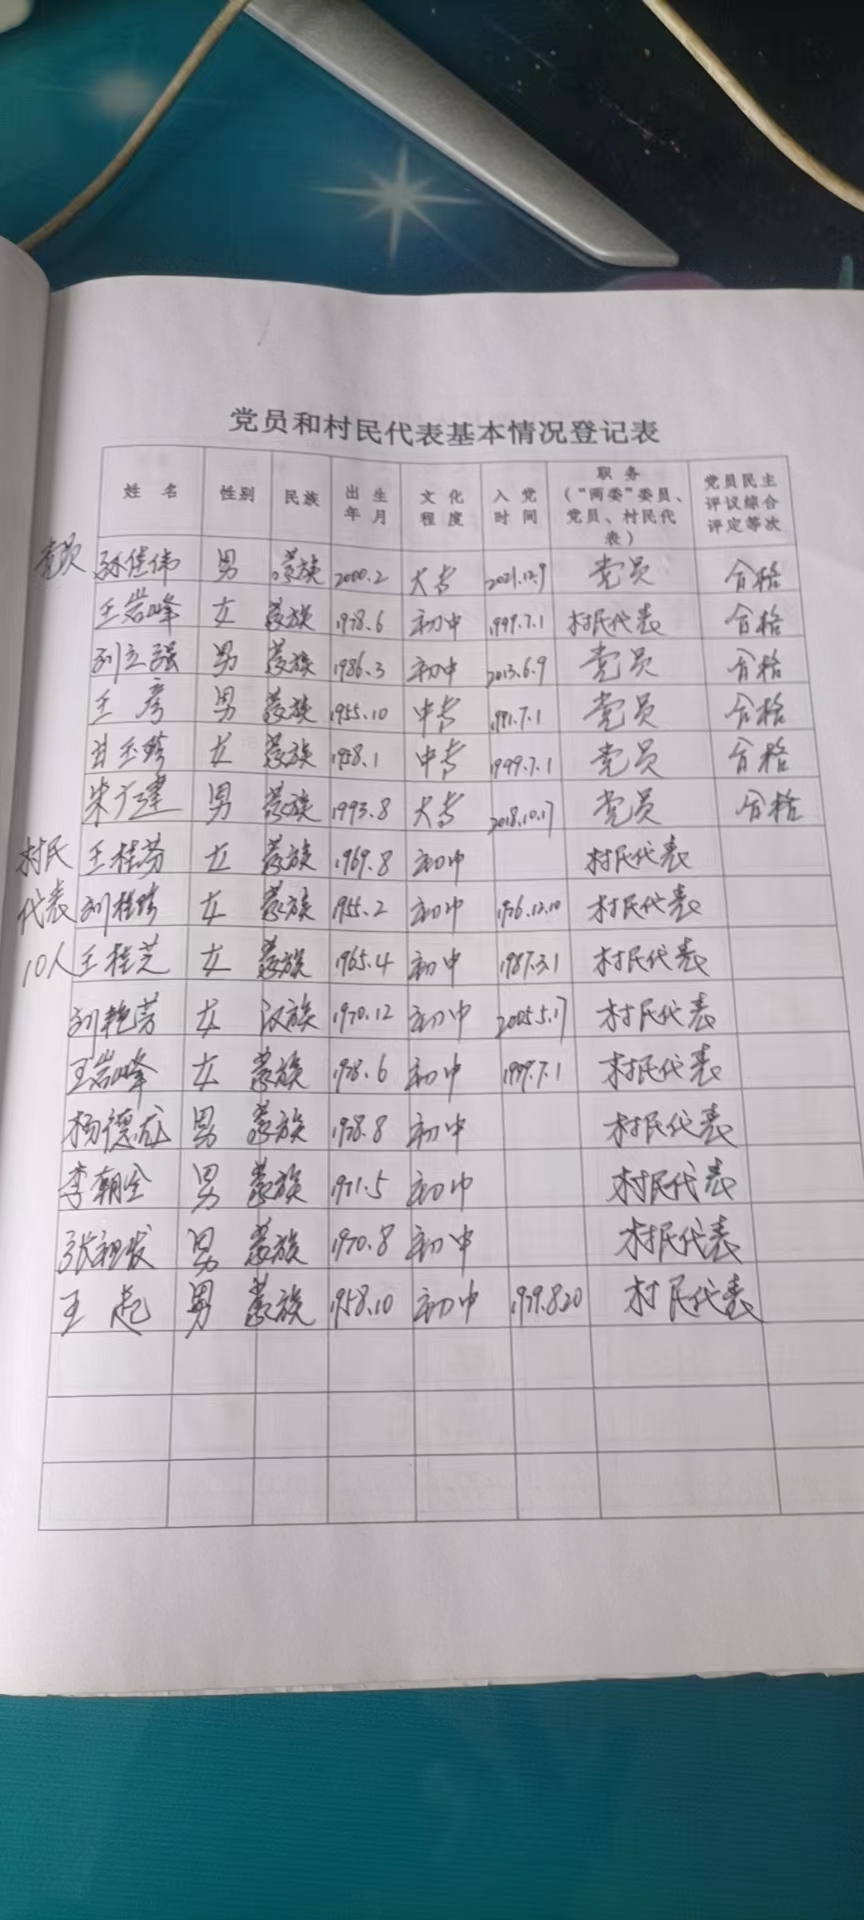 党员和村民代表基本情况登记表
姓 名 性别 民族 出生年月 文化程度 入党时间 职务（“两委”委员、党员、村民代表） 党员民主评议综合评定等次
党员 孙佳伟 男 蒙族 2000.2 大专 2021.12.9 党员 合格
王岩峰 女 蒙族 1978.6 初中 1999.7.1 村民代表 合格
刘立强 男 蒙族 1986.3 初中 2013.6.9 党员 合格
王彦 男 蒙族 1955.10 中专 1991.7.1 党员 合格
女 蒙族 1958.1 中专 1999.7.1 党员 合格
朱广建 男 蒙族 1993.8 大专 2018.10.17 党员 合格
村民 王桂芬 女 蒙族 1969.8 初中 村民代表
代表 刘桂珍 女 蒙族 1955.2 初中 1976.12.10 村民代表
10人 王桂芝 女 蒙族 1965.4 初中 1987.3.1 村民代表
刘艳芳 女 汉族 1970.12 初中 2005.5.17 村民代表
王岩峰 女 蒙族 1978.6 初中 1999.7.1 村民代表
杨德龙 男 蒙族 1978.8 初中 村民代表
李朝全 男 蒙族 1971.5 初中 村民代表
男 蒙族 1970.8 初中 村民代表
王起 男 蒙族 1958.10 初中 1979.8.20 村民代表